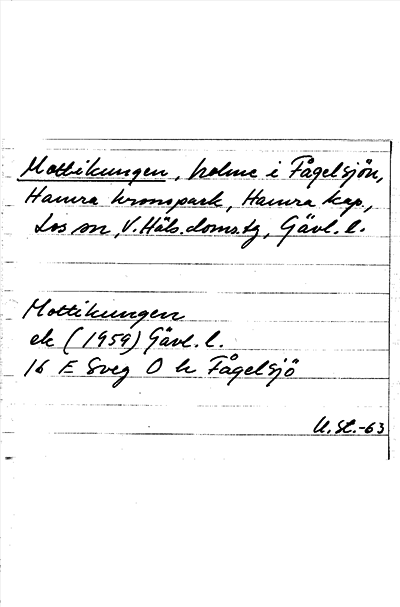 Mottikungen, holme i Fågelsjön,
Hamra kronopark, Hamra kap.,
Los sn, V. Häls. doms.tg, Gävl. l.
Mottikungen
ek (1959) Gävl. l.
16 E Sveg O h Fågelsjö
U. St.-63